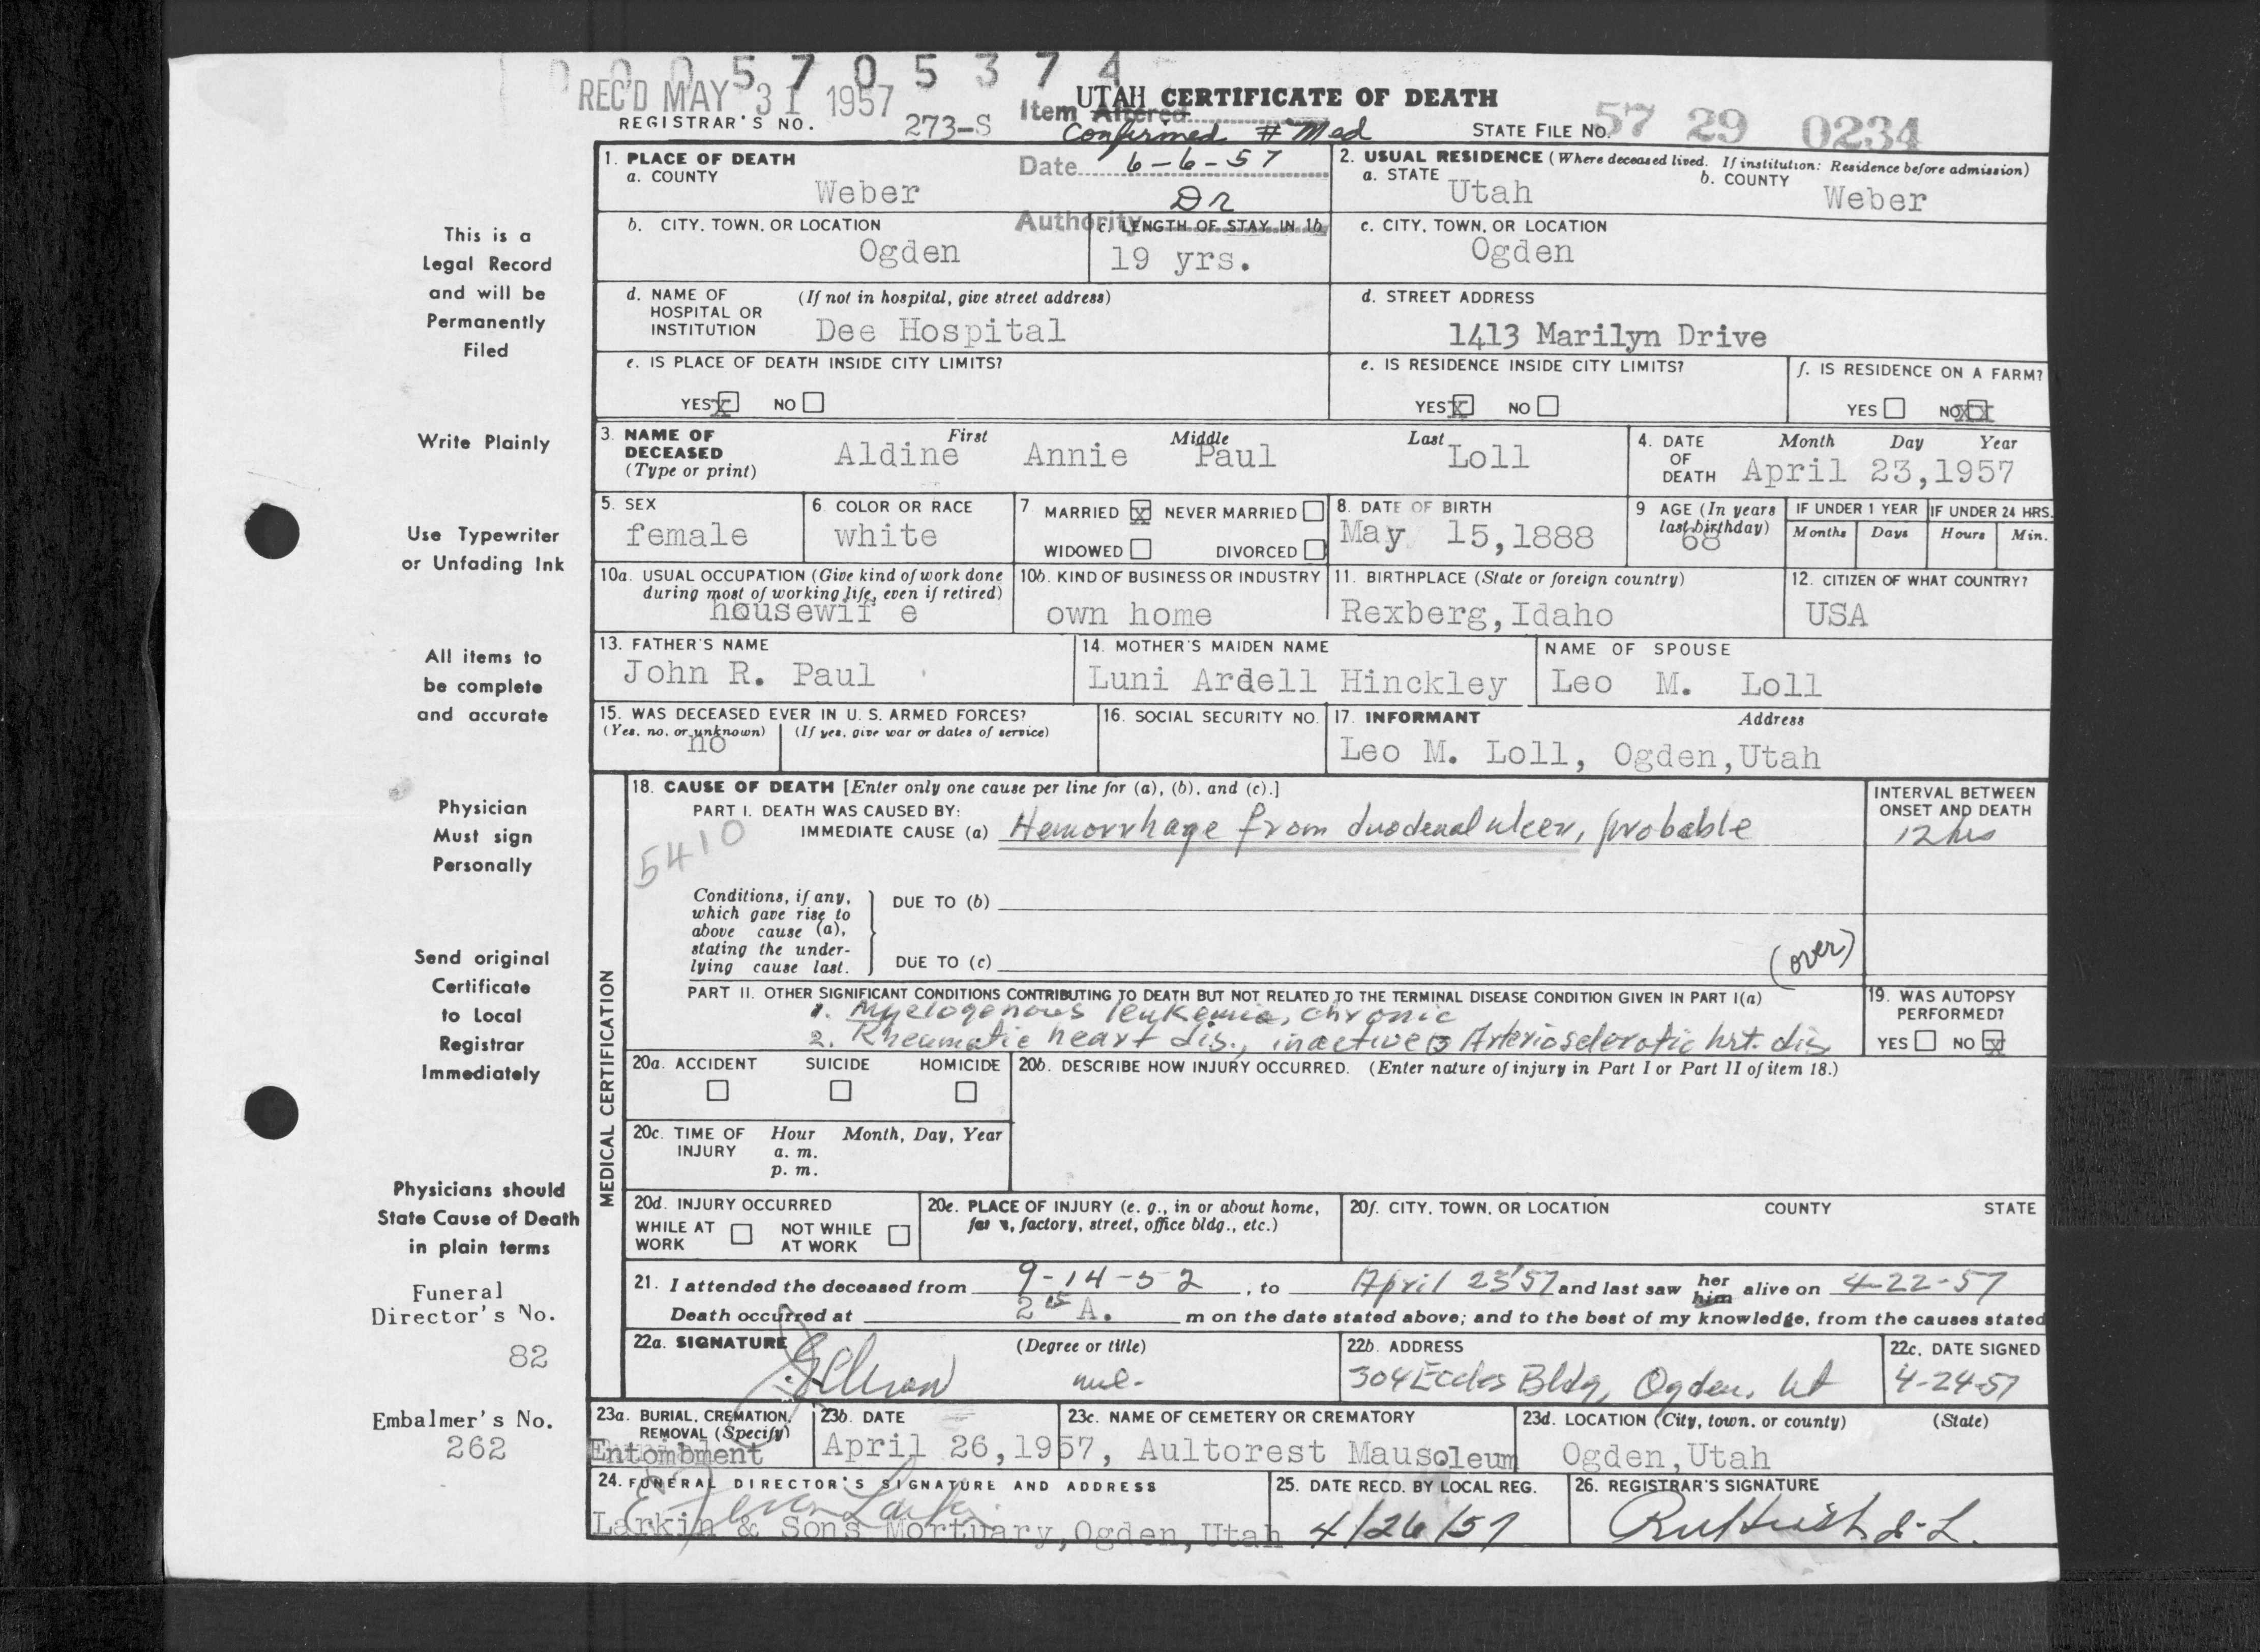 0005705374
REC'D MAY 31 1957
UTAH CERTIFICATE OF DEATH
REGISTRAR'S NO. 273-S
Item Altered
Confirmed # Med
STATE FILE No. 57 29 0234
Date 6-6-57
Authority Dr
This is a
Legal Record
and will be
Permanently
Filed
Write Plainly
Use Typewriter
or Unfading Ink
All items to
be complete
and accurate
Physician
Must sign
Personally
Send original
Certificate
to Local
Registrar
Immediately
Physicians should
State Cause of Death
in plain terms
Funeral
Director's No.
82
Embalmer's No.
262
1. PLACE OF DEATH
a. COUNTY Weber
2. USUAL RESIDENCE (Where deceased lived. If institution: Residence before admission)
a. STATE Utah b. COUNTY Weber
b. CITY, TOWN, OR LOCATION Ogden
c. LENGTH OF STAY IN 1b 19 yrs.
c. CITY, TOWN, OR LOCATION Ogden
d. NAME OF HOSPITAL OR INSTITUTION (If not in hospital, give street address) Dee Hospital
d. STREET ADDRESS 1413 Marilyn Drive
e. IS PLACE OF DEATH INSIDE CITY LIMITS?
YES X NO
e. IS RESIDENCE INSIDE CITY LIMITS?
YES X NO
f. IS RESIDENCE ON A FARM?
YES NO XX
3. NAME OF DECEASED (Type or print)
First Middle Last
Aldine Annie Paul Loll
4. DATE OF DEATH Month Day Year
April 23,1957
5. SEX female
6. COLOR OR RACE white
7. MARRIED X NEVER MARRIED
WIDOWED DIVORCED
8. DATE OF BIRTH May 15,1888
9 AGE (In years last birthday) 68
IF UNDER 1 YEAR Months Days
IF UNDER 24 HRS. Hours Min.
10a. USUAL OCCUPATION (Give kind of work done during most of working life, even if retired) housewif e
10b. KIND OF BUSINESS OR INDUSTRY own home
11. BIRTHPLACE (State or foreign country) Rexberg,Idaho
12. CITIZEN OF WHAT COUNTRY? USA
13. FATHER'S NAME John R. Paul
14. MOTHER'S MAIDEN NAME Luni Ardell Hinckley
NAME OF SPOUSE Leo M. Loll
15. WAS DECEASED EVER IN U. S. ARMED FORCES?
(Yes, no, or unknown) (If yes, give war or dates of service)
no
16. SOCIAL SECURITY NO.
17. INFORMANT Address
Leo M. Loll, Ogden,Utah
MEDICAL CERTIFICATION
18. CAUSE OF DEATH [Enter only one cause per line for (a), (b), and (c).]
INTERVAL BETWEEN ONSET AND DEATH
PART I. DEATH WAS CAUSED BY:
IMMEDIATE CAUSE (a) Hemorrhage from duodenal ulcer, probable 12 hrs
5410
Conditions, if any, which gave rise to above cause (a), stating the underlying cause last.
DUE TO (b)
DUE TO (c)
(over)
PART II. OTHER SIGNIFICANT CONDITIONS CONTRIBUTING TO DEATH BUT NOT RELATED TO THE TERMINAL DISEASE CONDITION GIVEN IN PART I(a)
1. Myelogenous leukemia, chronic
2. Rheumatic heart dis., inactive 3 Arteriosclerotic hrt. dis
19. WAS AUTOPSY PERFORMED?
YES NO X
20a. ACCIDENT SUICIDE HOMICIDE
20b. DESCRIBE HOW INJURY OCCURRED. (Enter nature of injury in Part I or Part II of item 18.)
20c. TIME OF INJURY Hour Month, Day, Year
a. m.
p. m.
20d. INJURY OCCURRED
WHILE AT WORK NOT WHILE AT WORK
20e. PLACE OF INJURY (e. g., in or about home, farm, factory, street, office bldg., etc.)
20f. CITY, TOWN, OR LOCATION COUNTY STATE
21. I attended the deceased from 9-14-52, to April 23 '57 and last saw her him alive on 4-22-57
Death occurred at 2 15 A. m on the date stated above; and to the best of my knowledge, from the causes stated
22a. SIGNATURE (Degree or title)
22b. ADDRESS
304 Eccles Bldg, Ogden, Ut
22c. DATE SIGNED
4-24-57
23a. BURIAL, CREMATION, REMOVAL (Specify)
Entombment
23b. DATE
April 26,1957,
23c. NAME OF CEMETERY OR CREMATORY
Aultorest Mausoleum
23d. LOCATION (City, town, or county) (State)
Ogden,Utah
24. FUNERAL DIRECTOR'S SIGNATURE AND ADDRESS
Larkin & Sons Mortuary,Ogden,Utah
25. DATE RECD. BY LOCAL REG.
4/26/57
26. REGISTRAR'S SIGNATURE